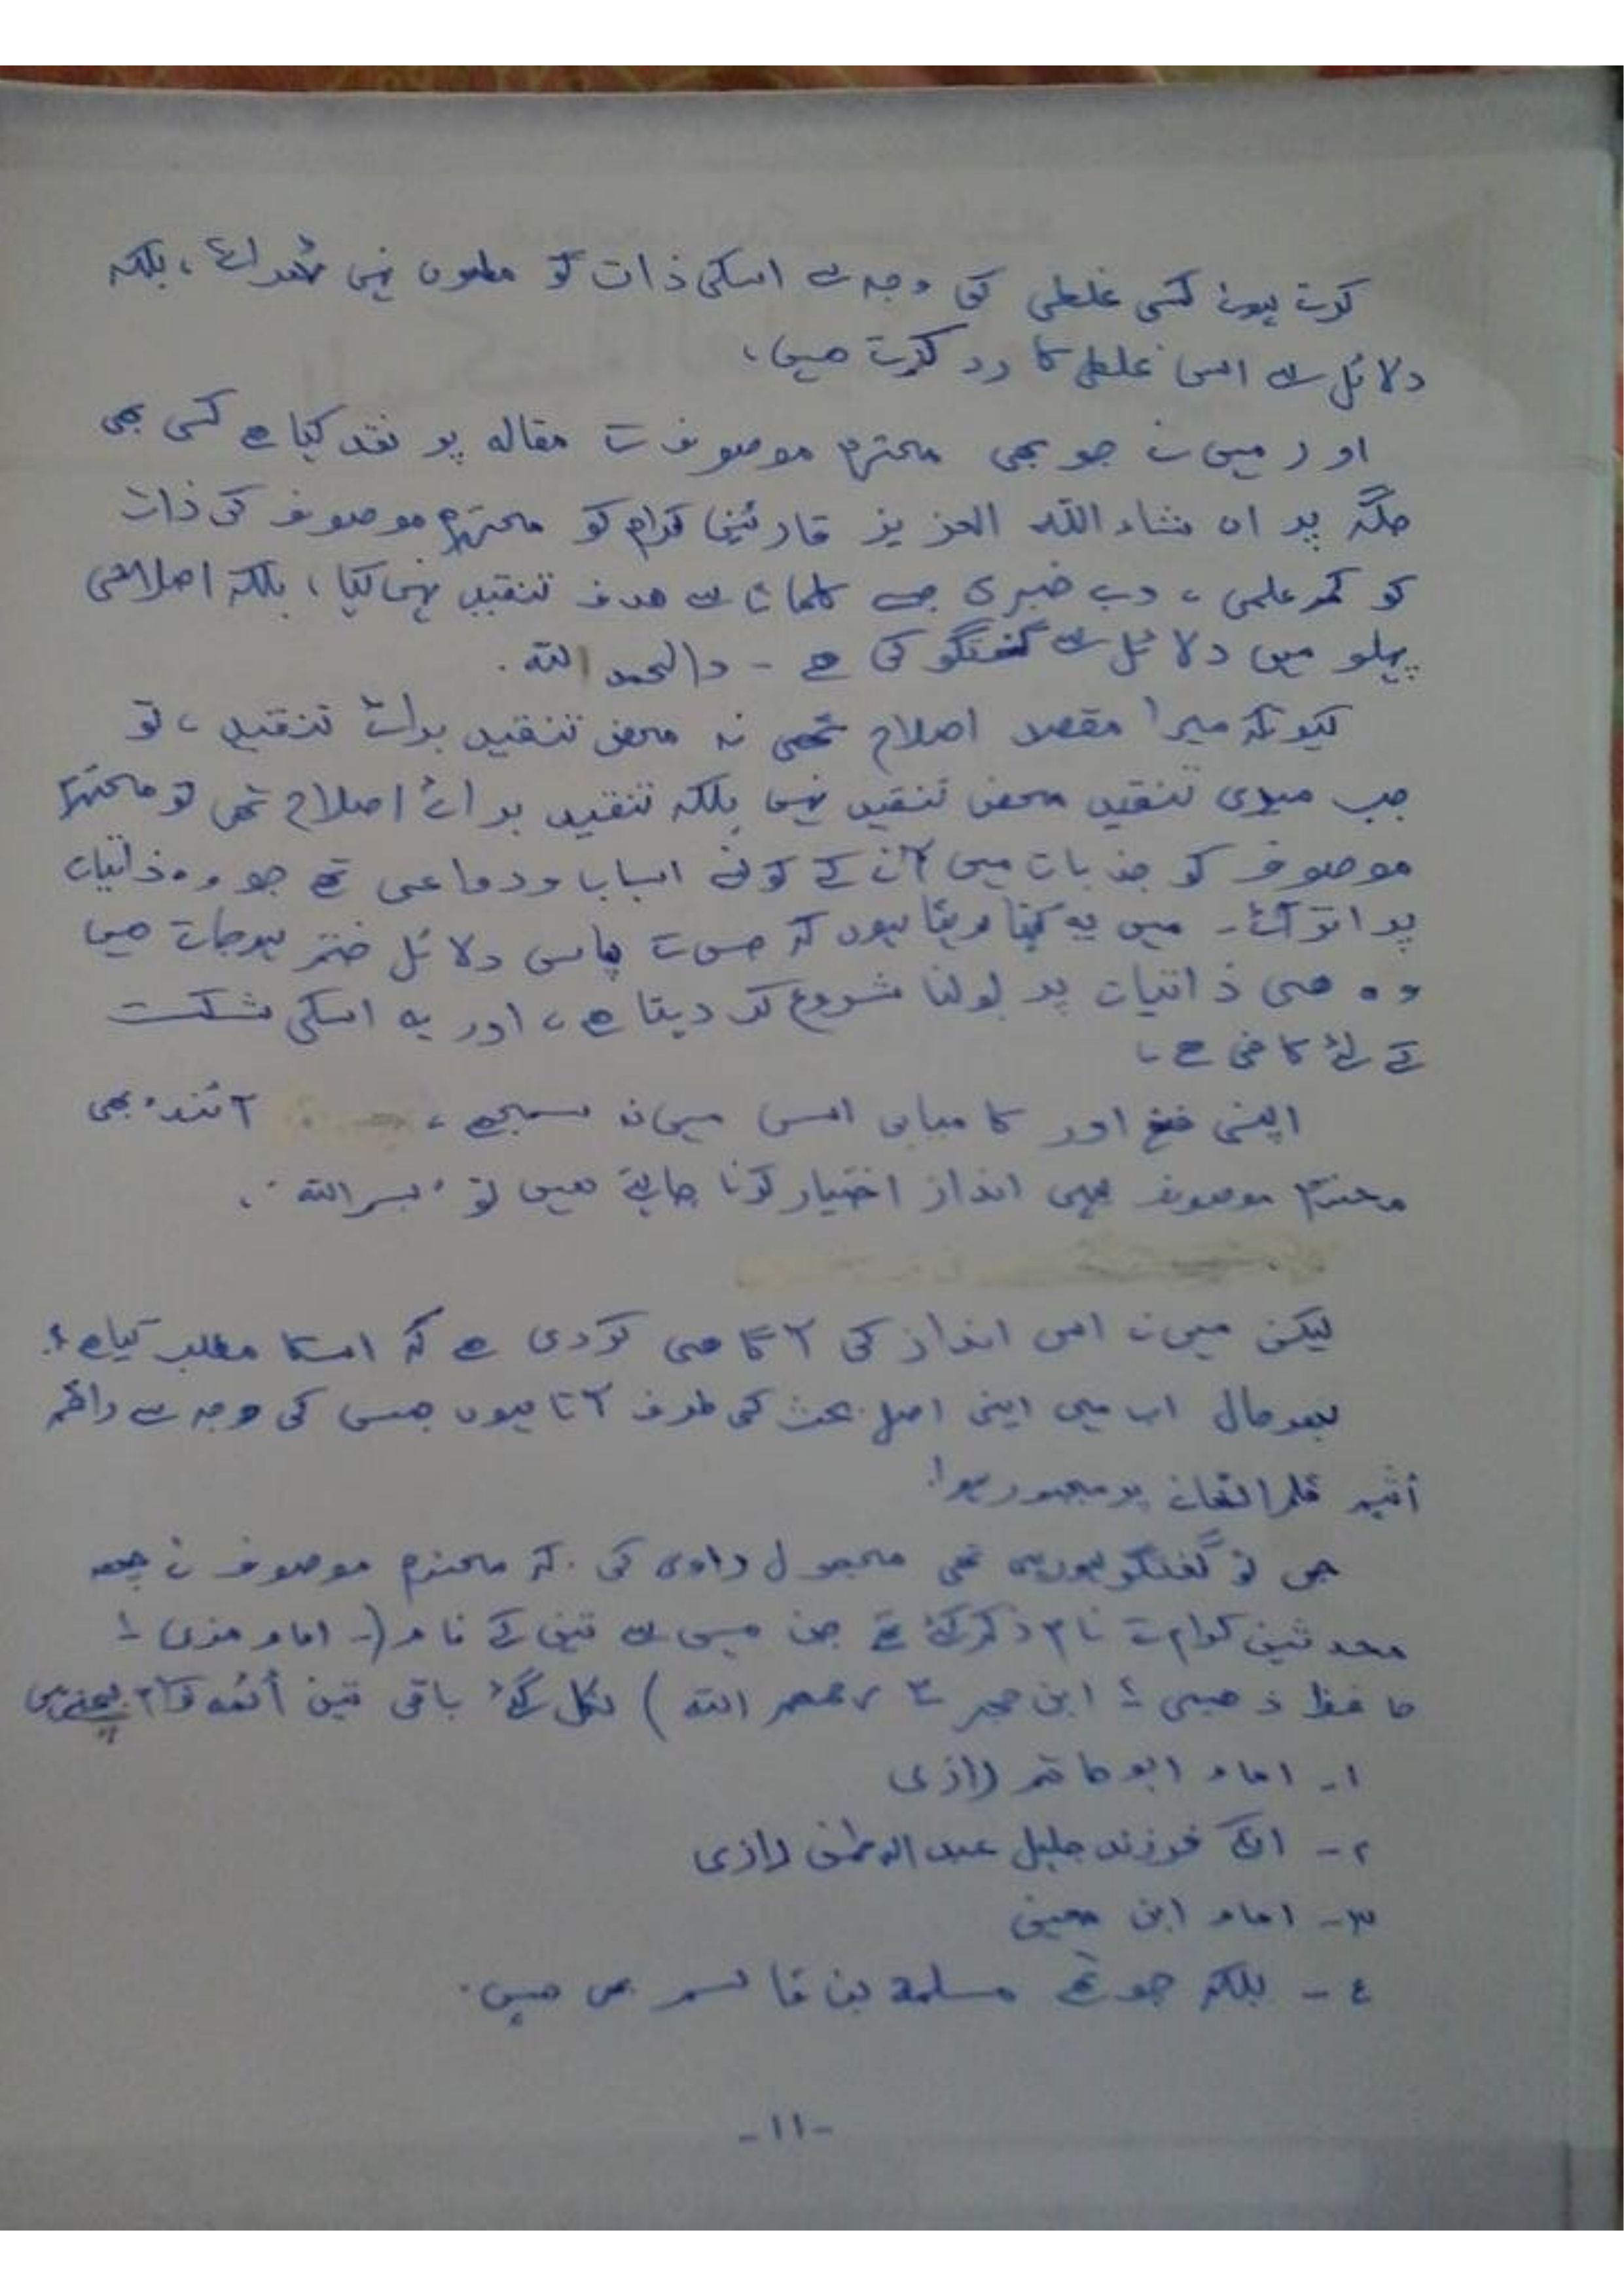 کرتے ہوئے کسی غلطی کی وجہ سے اسکی ذات کو مطعون نہیں ٹھہراتے، بلکہ
دلائل سے اسی غلطی کا رد کرتے ہیں،
اور میں نے جو بھی محترم موصوف کے مقالہ پر نقد کیا ہے کسی بھی
جگہ پر ان شاء اللہ العزیز قارئین کرام کو محترم موصوف کی ذات
کو کم علمی، بے خبری جیسے کلمات سے ھدف تنقید نہیں کیا، بلکہ اصلاحی
پہلو میں دلائل سے گفتگو کی ہے - والحمد للہ.
کیونکہ میرا مقصد اصلاح تھی نہ محض تنقید برائے تنقید، تو
جب میری تنقید محض تنقید نہیں بلکہ تنقید برائے اصلاح تھی تو محترم
موصوف کو جذبات میں آنے کے کونسے اسباب ودواعی تھے جو وہ ذاتیات
پر اتر آئے۔ میں یہ کہتا ہوں کہ جس کے پاس دلائل ختم ہوجاتے ہیں
وہ ہی ذاتیات پر بولنا شروع کر دیتا ہے، اور یہ اسکی شکست
کے لئے کافی ہے،
اپنی فتح اور کامیابی اس میں نہ سمجھے، آئندہ بھی
محترم موصوف یہی انداز اختیار کرنا چاہتے ہیں تو "بسم اللہ".
لیکن میں نے اس انداز کی آگاہی کردی ہے کہ اسکا مطلب کیا ہے؟
بہرحال اب میں اپنی اصل بحث کی طرف آتا ہوں جس کی وجہ سے راقم
أثیم قلم اٹھانے پر مجبور ہوا!
جی تو گفتگو ہورہی تھی مجہول راوی کی کہ محترم موصوف نے چھ
محدثین کرام کے نام ذکر کئے تھے جن میں سے تین کے نام (۔ امام مزی ۱
حافظ ذھبی ۲ ابن حجر ۳ رحمھم اللہ) نکل گئے باقی تین أئمہ کرام بچتے ہیں
۱۔ امام ابو حاتم رازی
۲۔ انکے فرزند جلیل عبد الرحمٰن رازی
۳۔ امام ابن معین
٤۔ بلکہ چوتھے مسلمة بن قاسم بھی ہیں.
-۱۱-